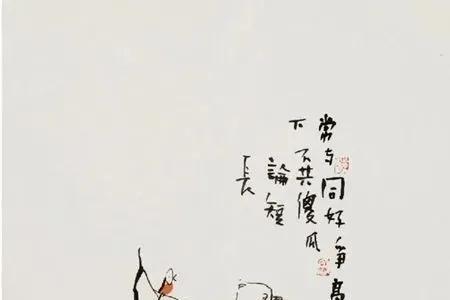 常与同好争高
下不共傻瓜
論短
長